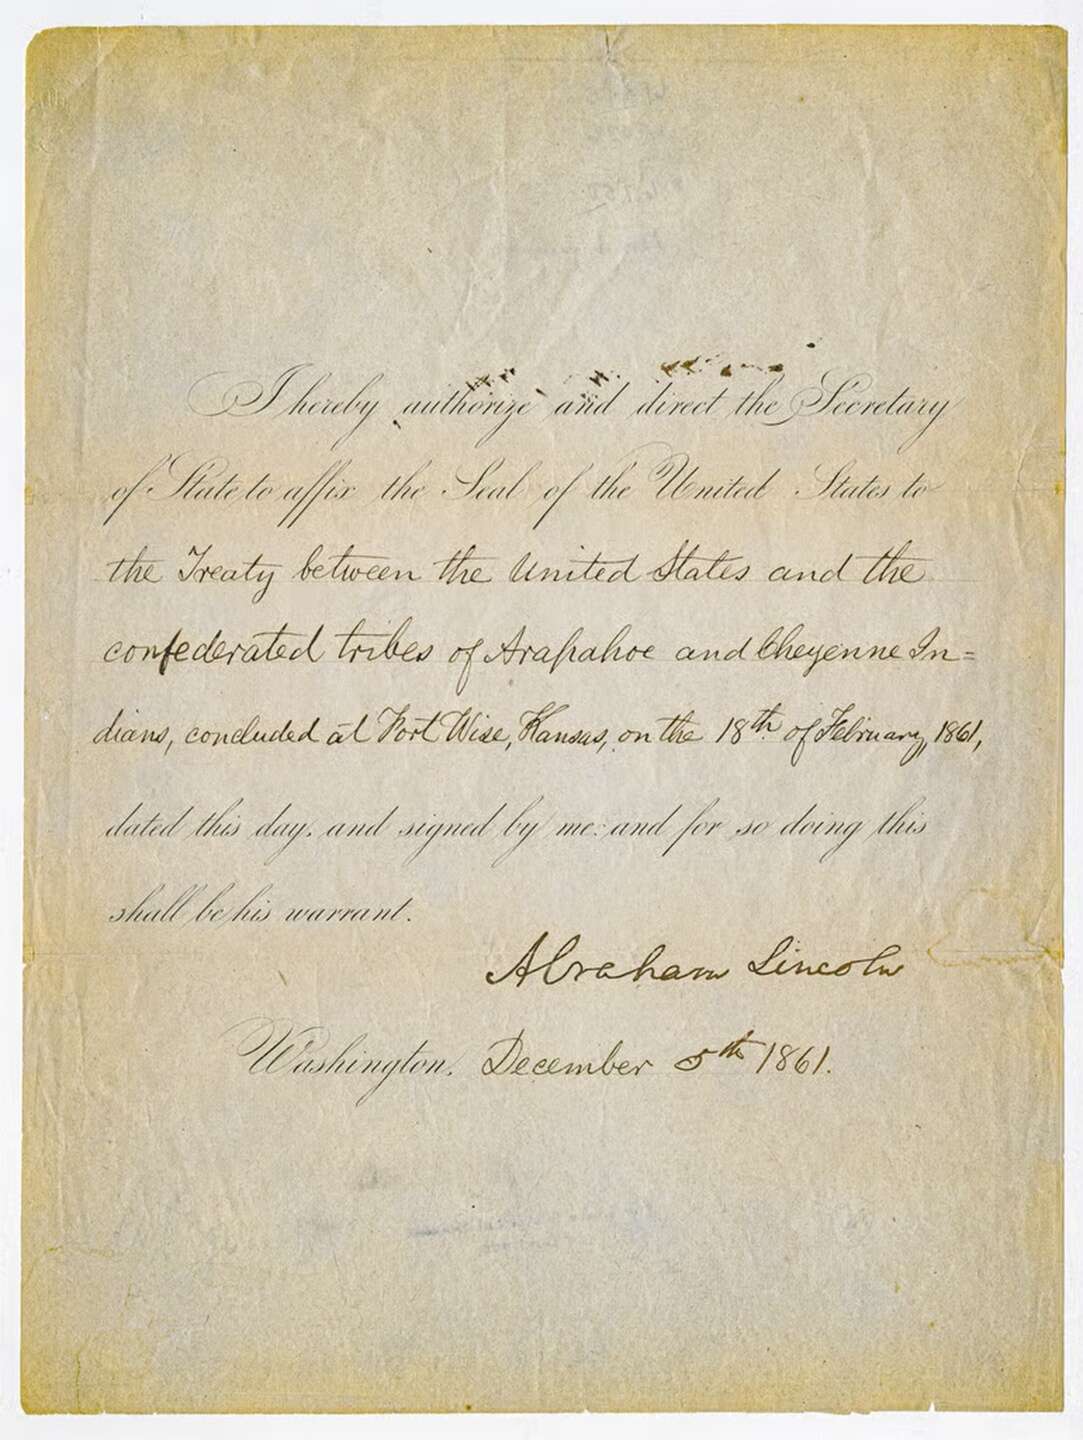 I hereby authorize and direct the Secretary
of State to affix the Seal of the United States to
the Treaty between the United States and the
confederated tribes of Arapahoe and Cheyenne In=
dians, concluded at Fort Wise, Kansas, on the 18th of February, 1861,
dated this day, and signed by me: and for so doing this
shall be his warrant.
Abraham Lincoln
Washington, December 5th 1861.